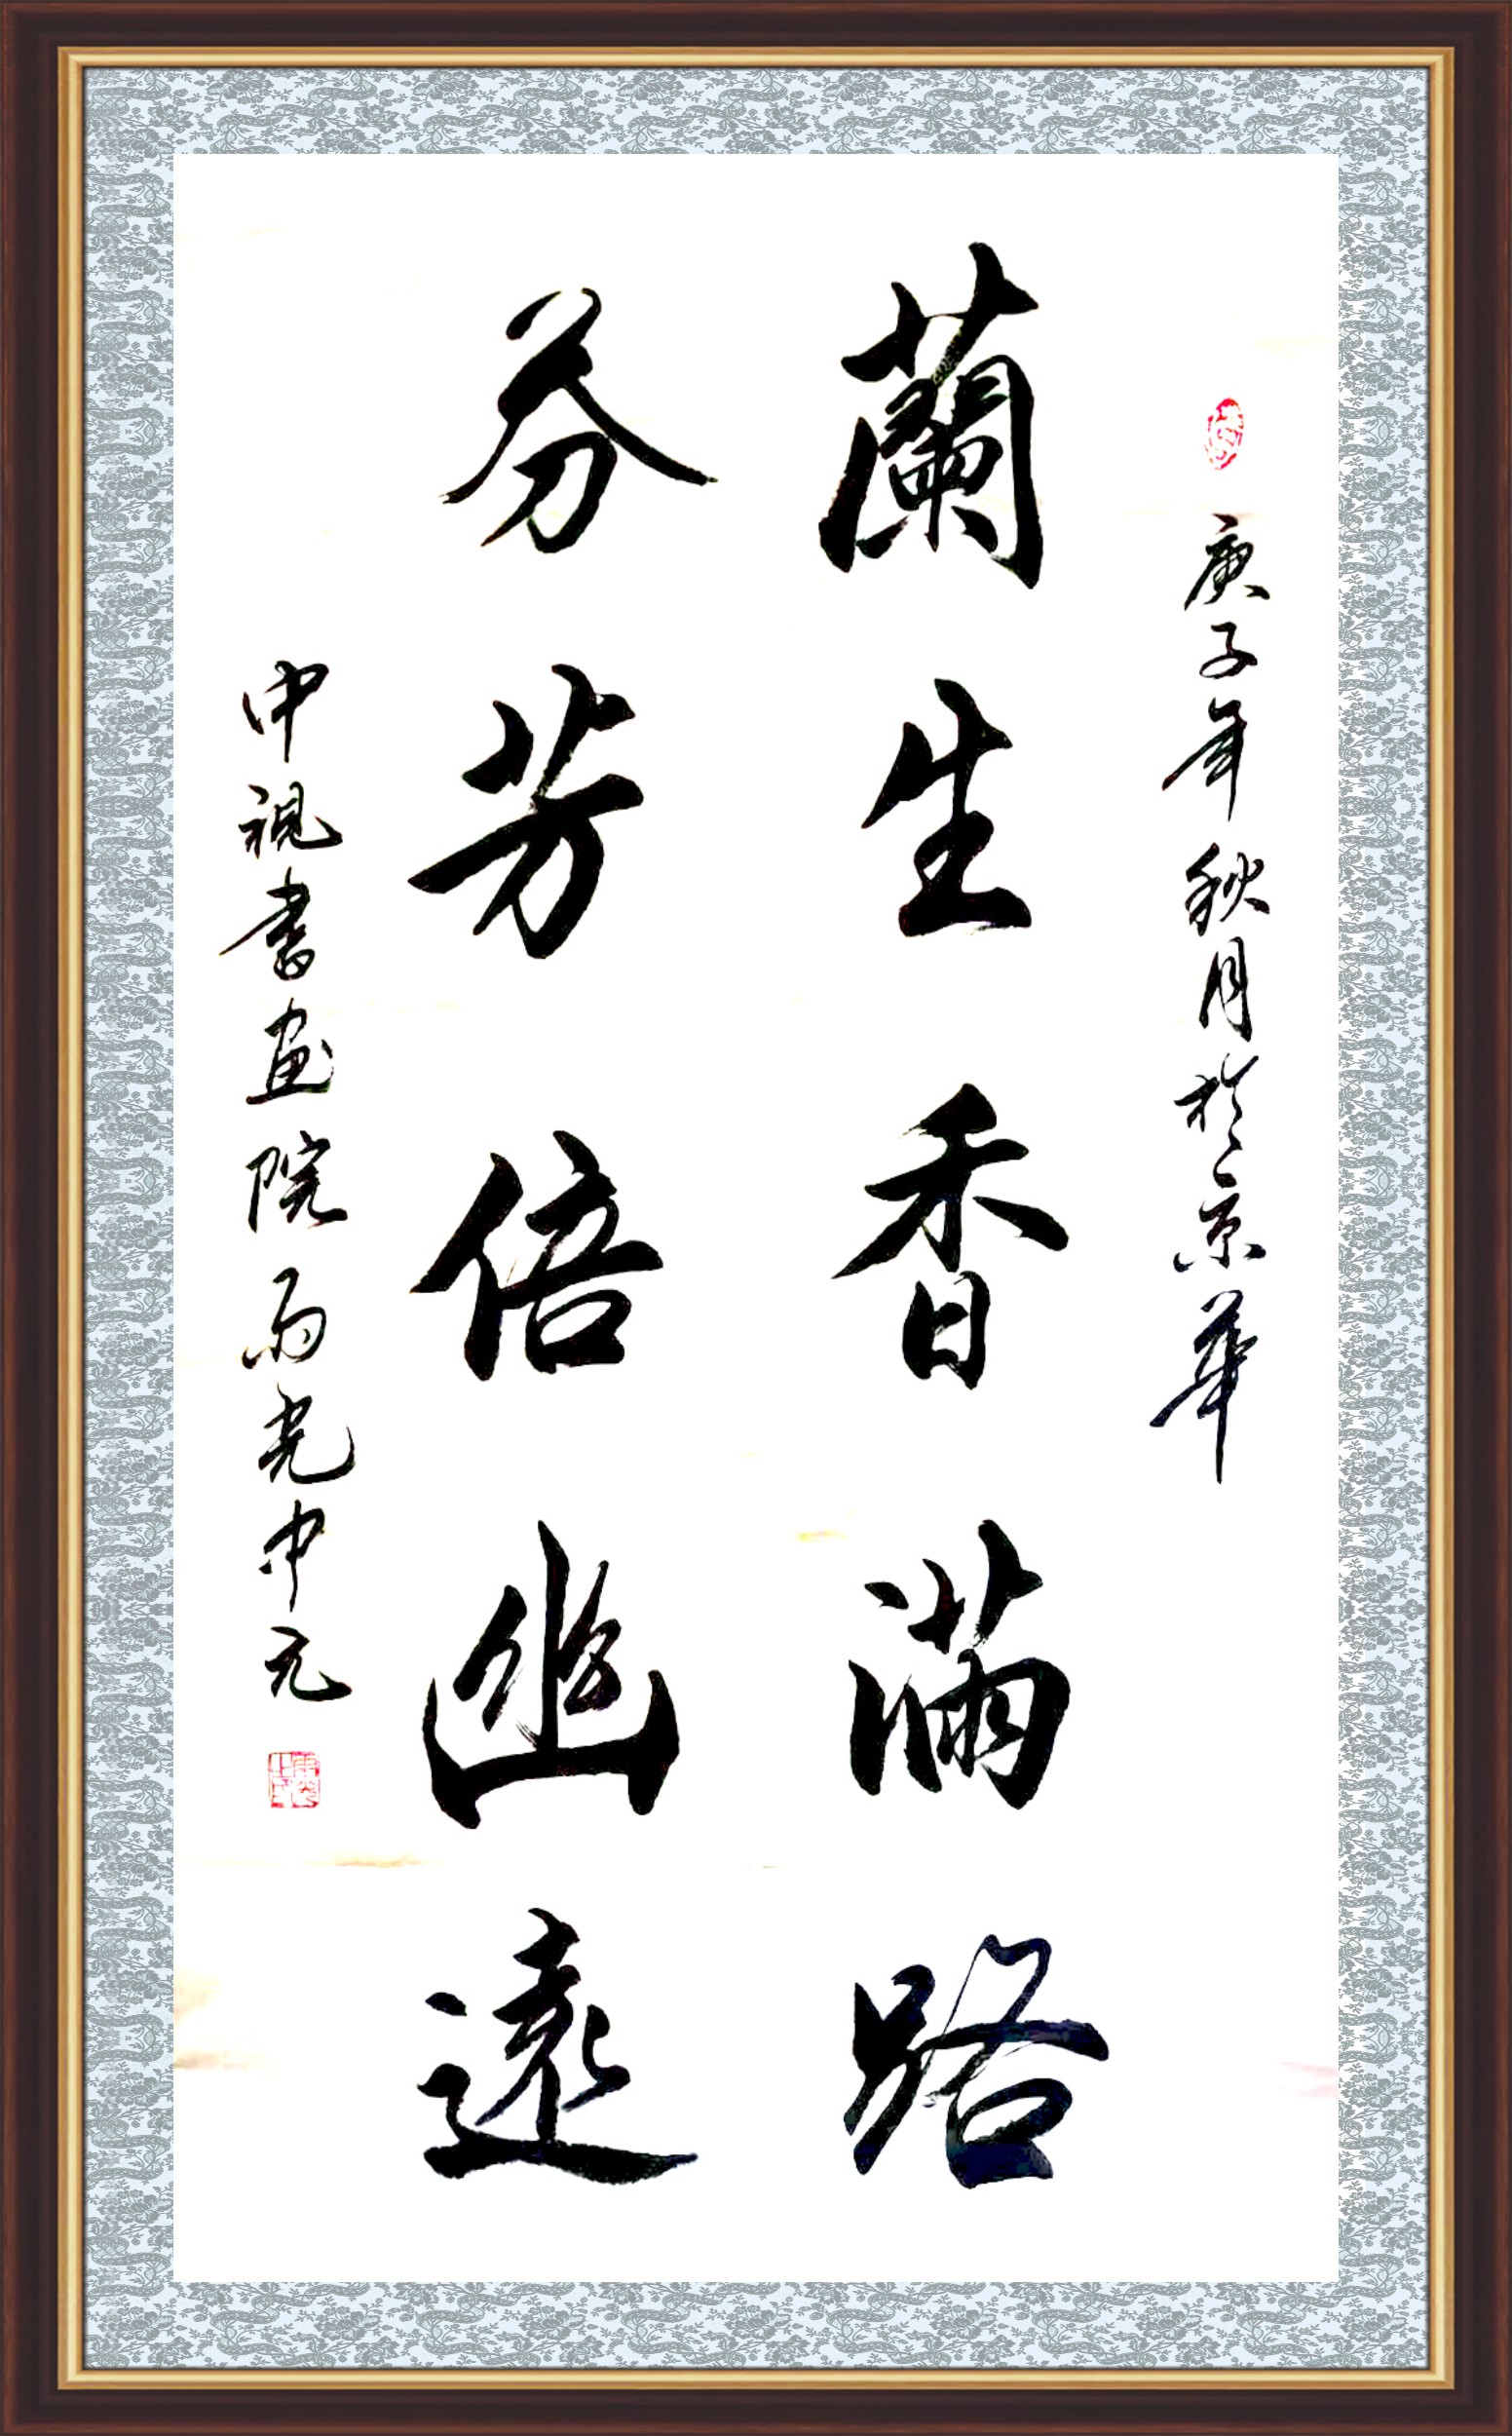 庚子年秋月於京華
蘭生香滿路
芬芳倍幽遠
中視書画院雨光中元